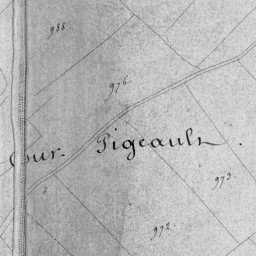 988.
976.
Our. Pigeault.
973.
972.